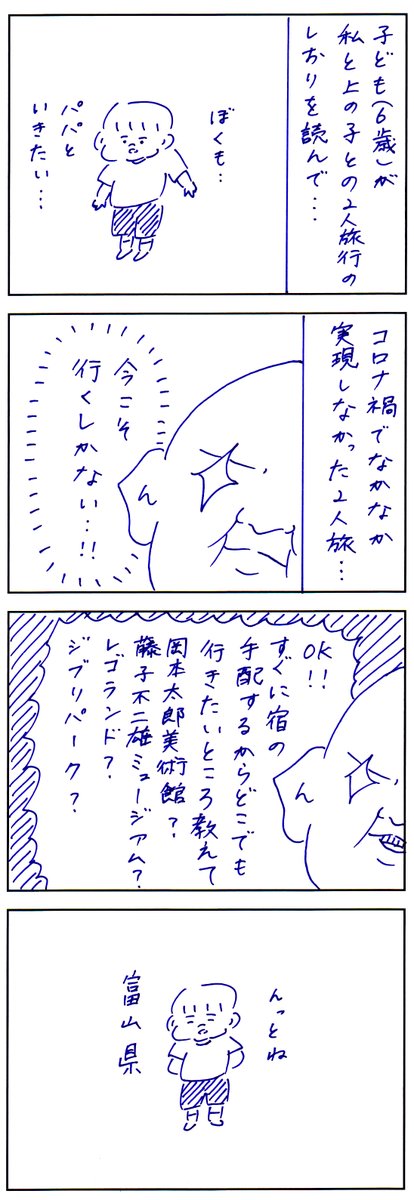 子ども(6歳)が
私と上の子との2人旅行の
しおりを読んで…
ぼくも…
パパと
いきたい…
コロナ禍でなかなか
実現しなかった2人旅…
ん
今こそ
行くしかない…!!
OK!!
すぐに宿の
手配するからどこでも
行きたいところ教えて
岡本太郎美術館?
藤子不二雄ミュージアム?
レゴランド?
ジブリパーク?
ん
んっとね
富山県